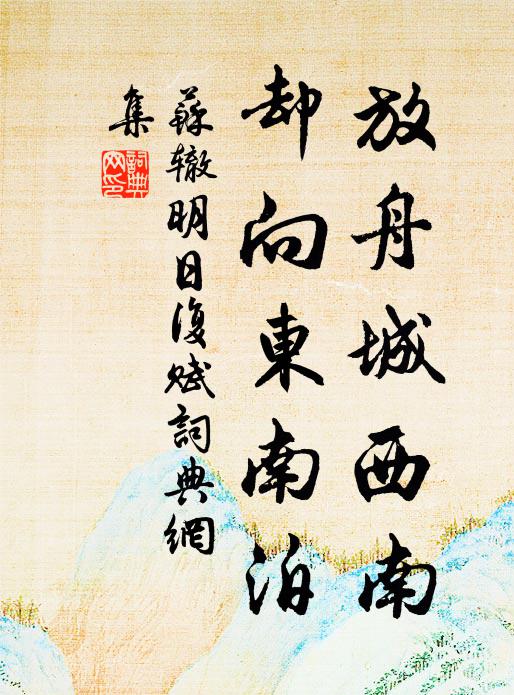 放舟城西南
却向東南泊
蘇辙明日復赋詞典網
集
詞典
网印